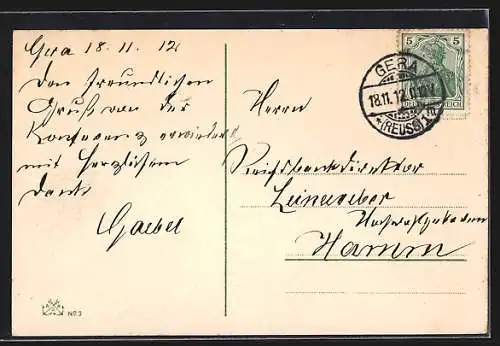 Gera 18.11.12
Den freundlichen
Gruß von der
Konferenz erwidert
mit herzlichem
Dank
Gaebel
Herrn
Reichsbankdirektor
Leineweber
Hamm
5 5
DEUTSCHES REICH
GERA
18.11.12
*(REUSS)
No 3